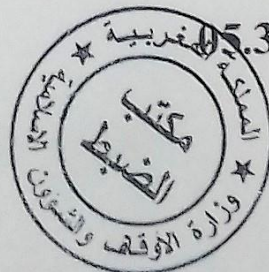 05.3
المملكة المغربية
وزارة الأوقاف والشؤون الإسلامية
مكتب
الضبط